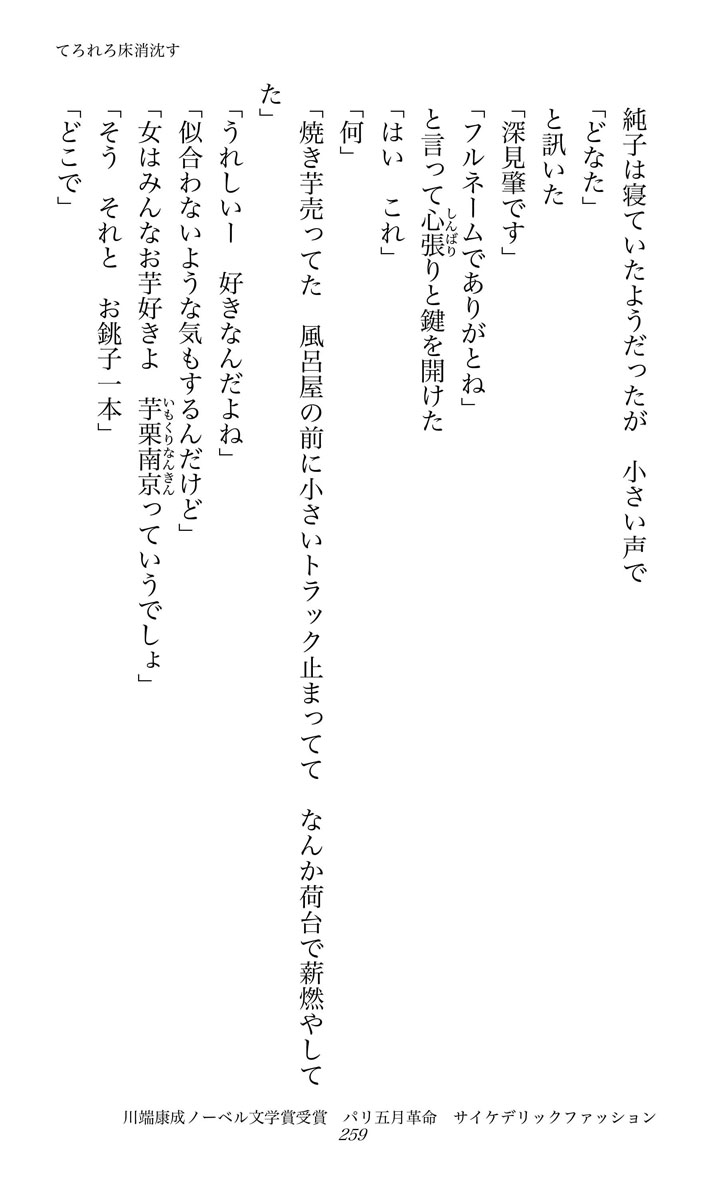 てろれろ床消沈す
純子は寝ていたようだったが　小さい声で
「どなた」
と訊いた
「深見肇です」
「フルネームでありがとね」
と言って心張りと鍵を開けた
しんばり
「はい　これ」
「何」
「焼き芋売ってた　風呂屋の前に小さいトラック止まってて　なんか荷台で薪燃やして
た」
「うれしいー　好きなんだよね」
「似合わないような気もするんだけど」
「女はみんなお芋好きよ　芋栗南京っていうでしょ」
いもくりなんきん
「そう　それと　お銚子一本」
「どこで」
川端康成ノーベル文学賞受賞　パリ五月革命　サイケデリックファッション
259